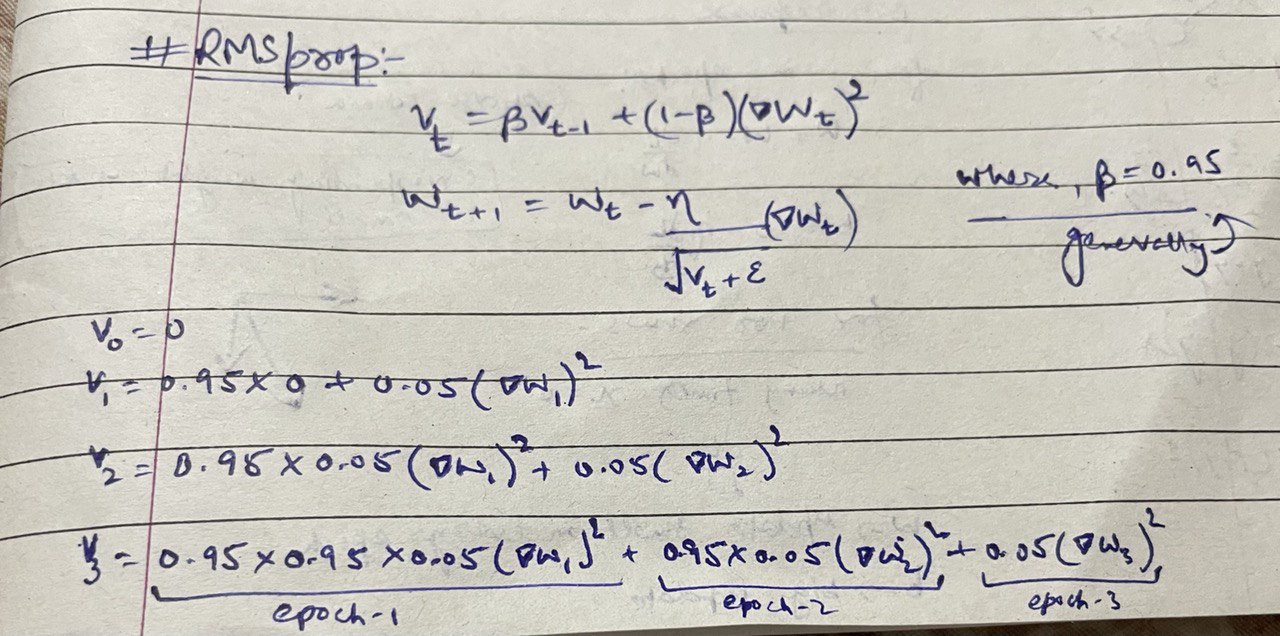 # RMSprop:-
v_t = βv_{t-1} + (1-β)(∇W_t)²
W_{t+1} = W_t - η/√(v_t + ε) (∇W_t)
where, β = 0.95
generally
v_0 = 0
v_1 = 0.95 × 0 + 0.05 (∇W_1)²
v_2 = 0.95 × 0.05 (∇W_1)² + 0.05 (∇W_2)²
v_3 = 0.95 × 0.95 × 0.05 (∇W_1)² + 0.95 × 0.05 (∇W_2)² + 0.05 (∇W_3)²
epoch-1 epoch-2 epoch-3